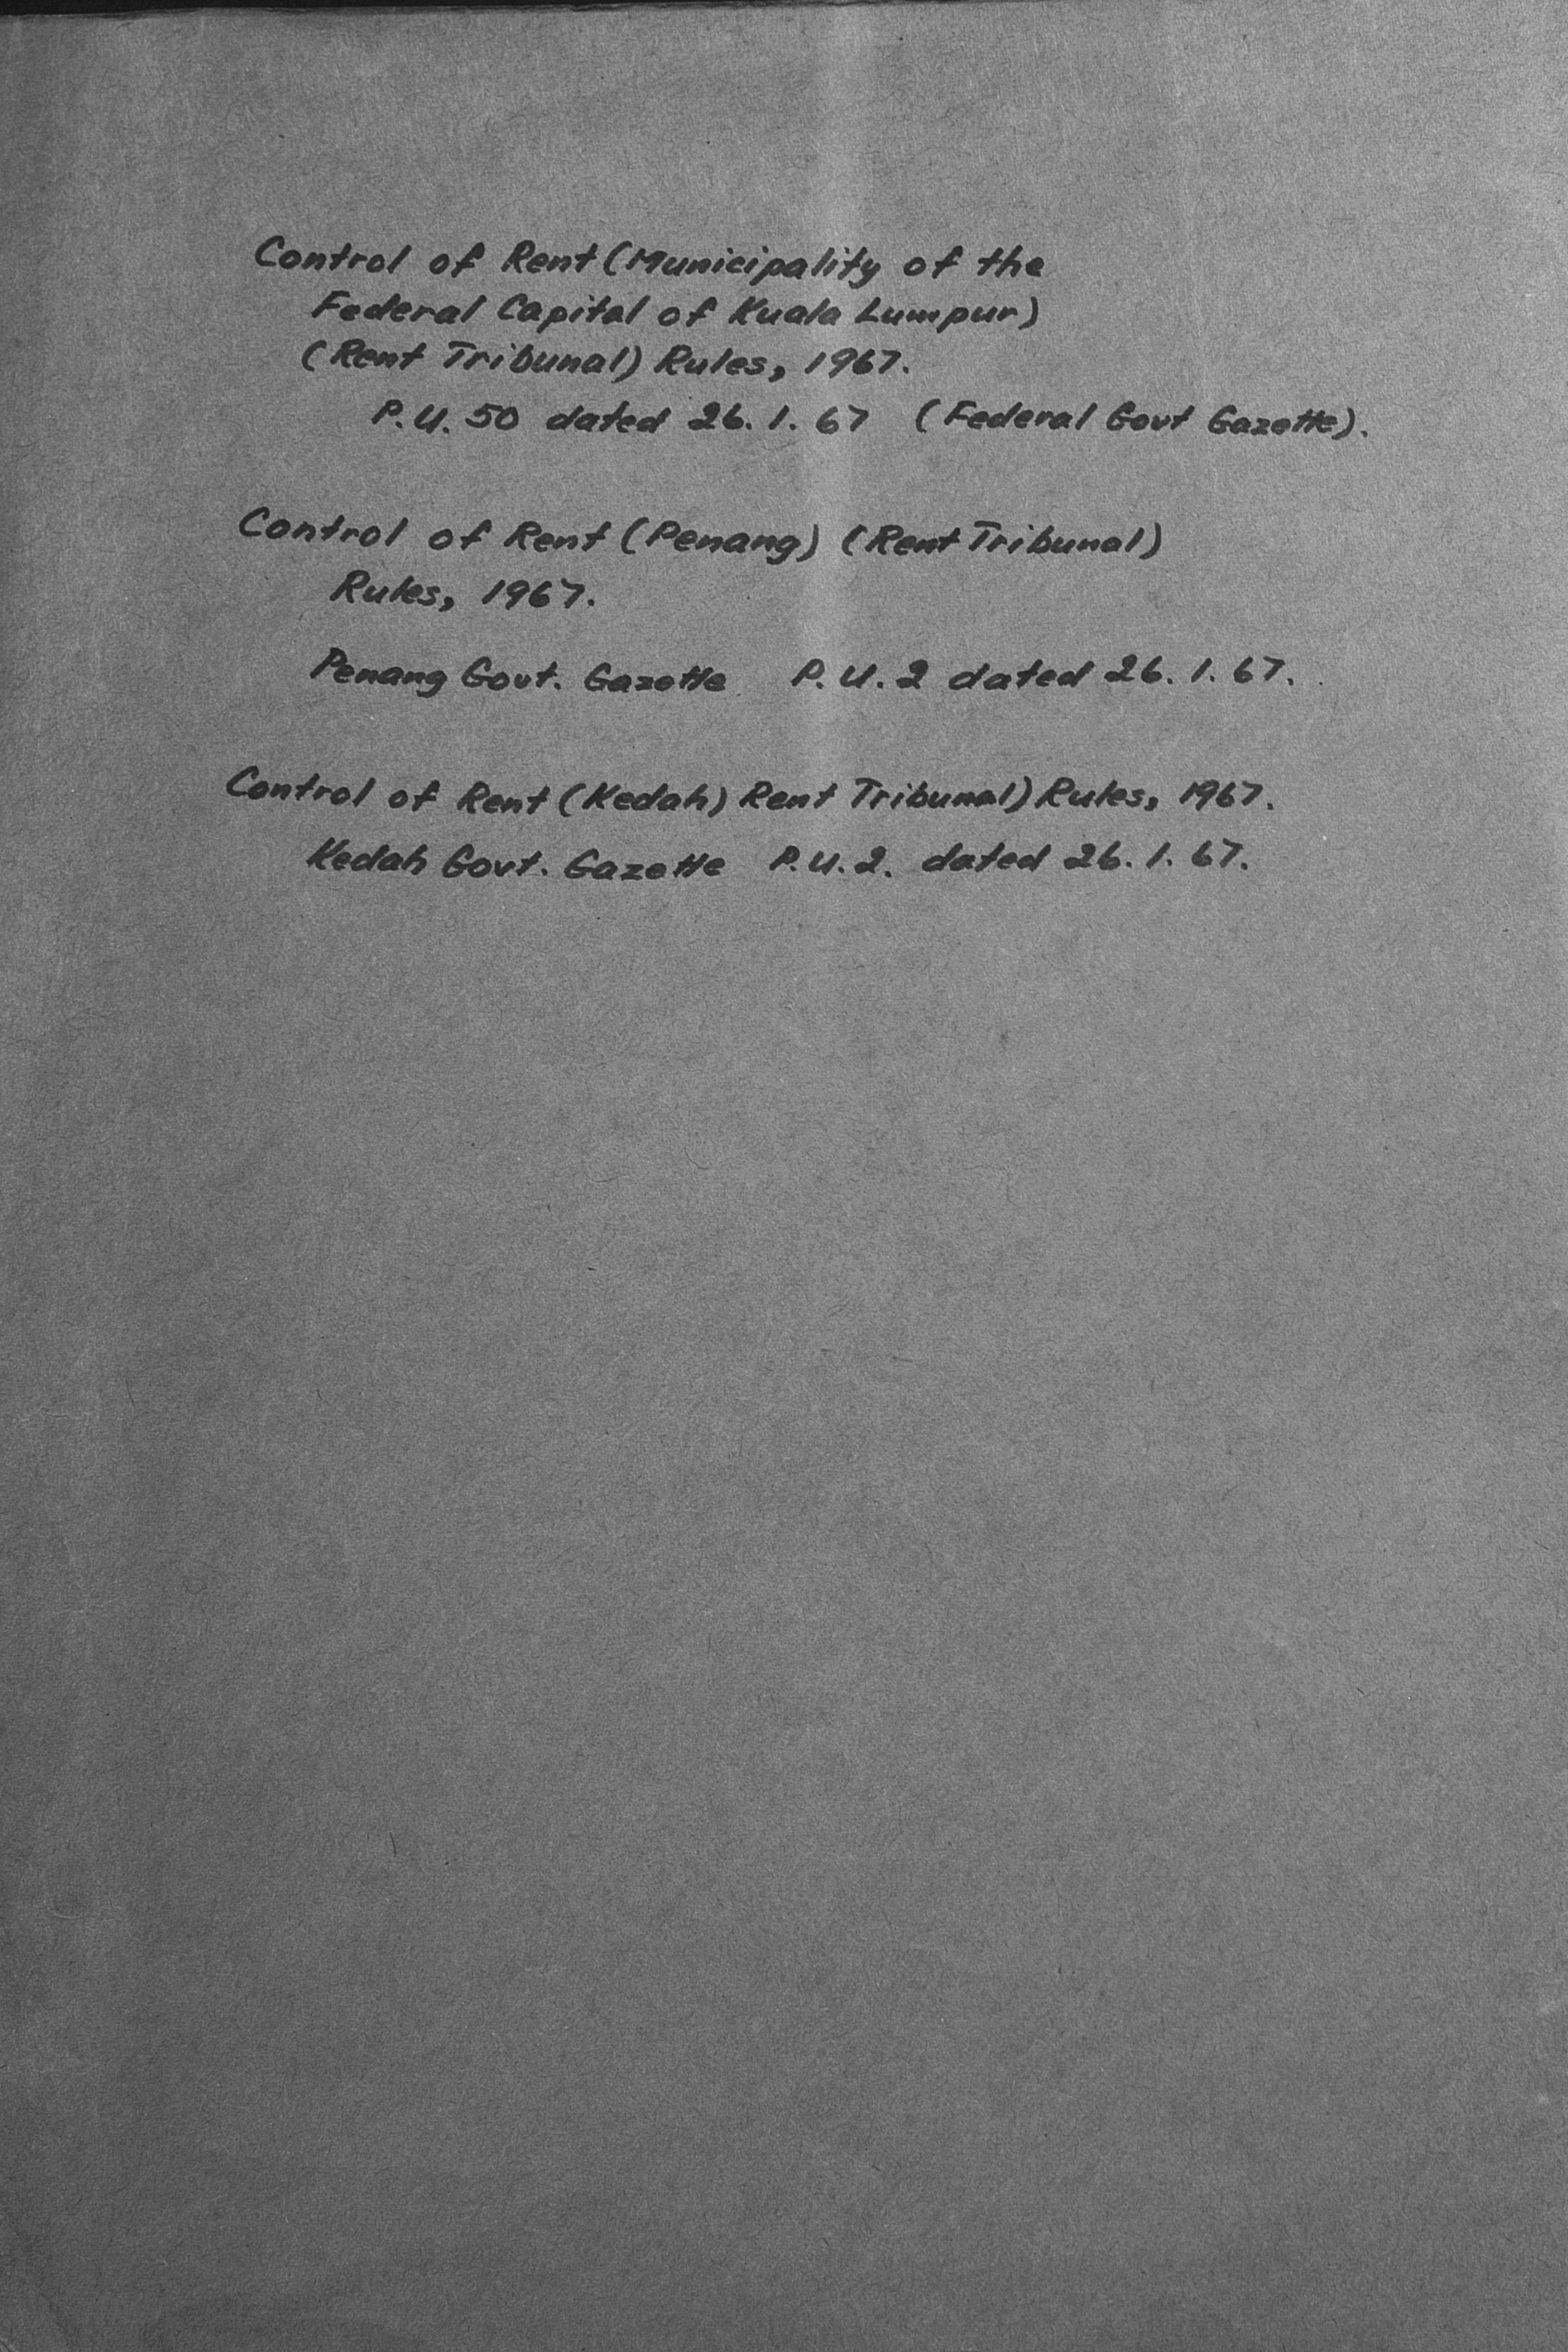 Control of Rent (Municipality of the
Federal Capital of Kuala Lumpur)
(Rent Tribunal) Rules, 1967.
P.U. 50 dated 26.1.67 (Federal Govt Gazette).
Control of Rent (Penang) (Rent Tribunal)
Rules, 1967.
Penang Govt. Gazette P.U.2 dated 26.1.67.
Control of Rent (Kedah) Rent Tribunal) Rules, 1967.
Kedah Govt. Gazette P.U.2. dated 26.1.67.